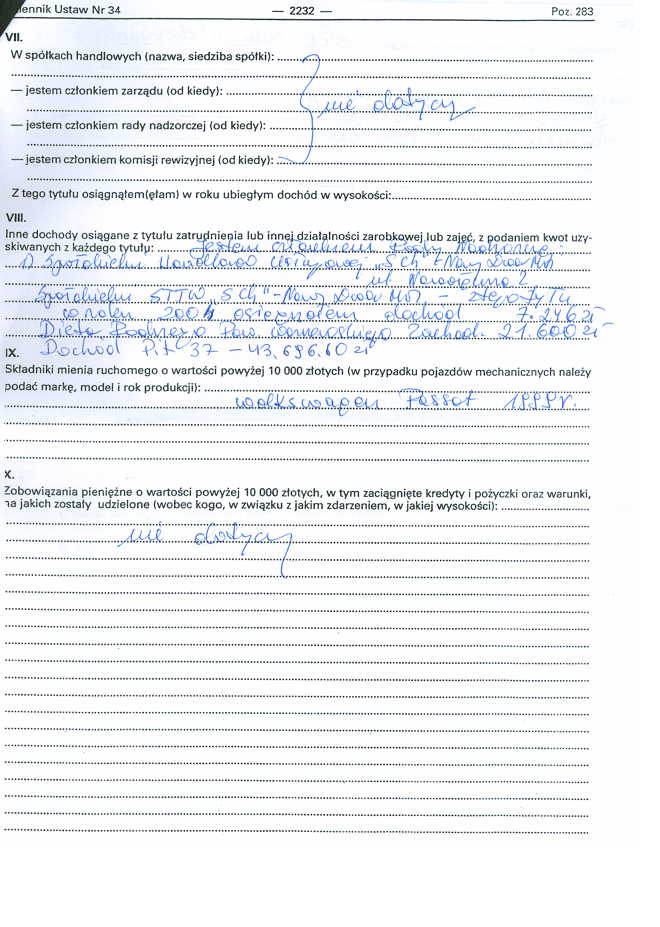 ennik Ustaw Nr 34 — 2232 — Poz. 283
VII.
W spółkach handlowych (nazwa, siedziba spółki):
— jestem członkiem zarządu (od kiedy):
nie dotyczy
— jestem członkiem rady nadzorczej (od kiedy):
— jestem członkiem komisji rewizyjnej (od kiedy):
Z tego tytułu osiągnąłem(ęłam) w roku ubiegłym dochód w wysokości:
VIII.
Inne dochody osiągane z tytułu zatrudnienia lub innej działalności zarobkowej lub zajęć, z podaniem kwot uzy-
skiwanych z każdego tytułu: Jestem członkiem Rady Nadzorczej
1) Spółdzielni Handlowo Usługowej „SCh" - Nowy Dwór Maz
ul
Spółdzielni „SCh" - Nowy Dwór Maz, - z tego tytułu
w roku osiągnąłem dochód 7.246 zł
Dieta Radnego Pow. Warszawskiego Zachod. 21.600 zł
Dochód Pit 37 – 43.696.60 zł
IX.
Składniki mienia ruchomego o wartości powyżej 10 000 złotych (w przypadku pojazdów mechanicznych należy
podać markę, model i rok produkcji):
wolkswagen Passat 1999 r.
X.
Zobowiązania pieniężne o wartości powyżej 10 000 złotych, w tym zaciągnięte kredyty i pożyczki oraz warunki,
na jakich zostały udzielone (wobec kogo, w związku z jakim zdarzeniem, w jakiej wysokości):
nie dotyczy